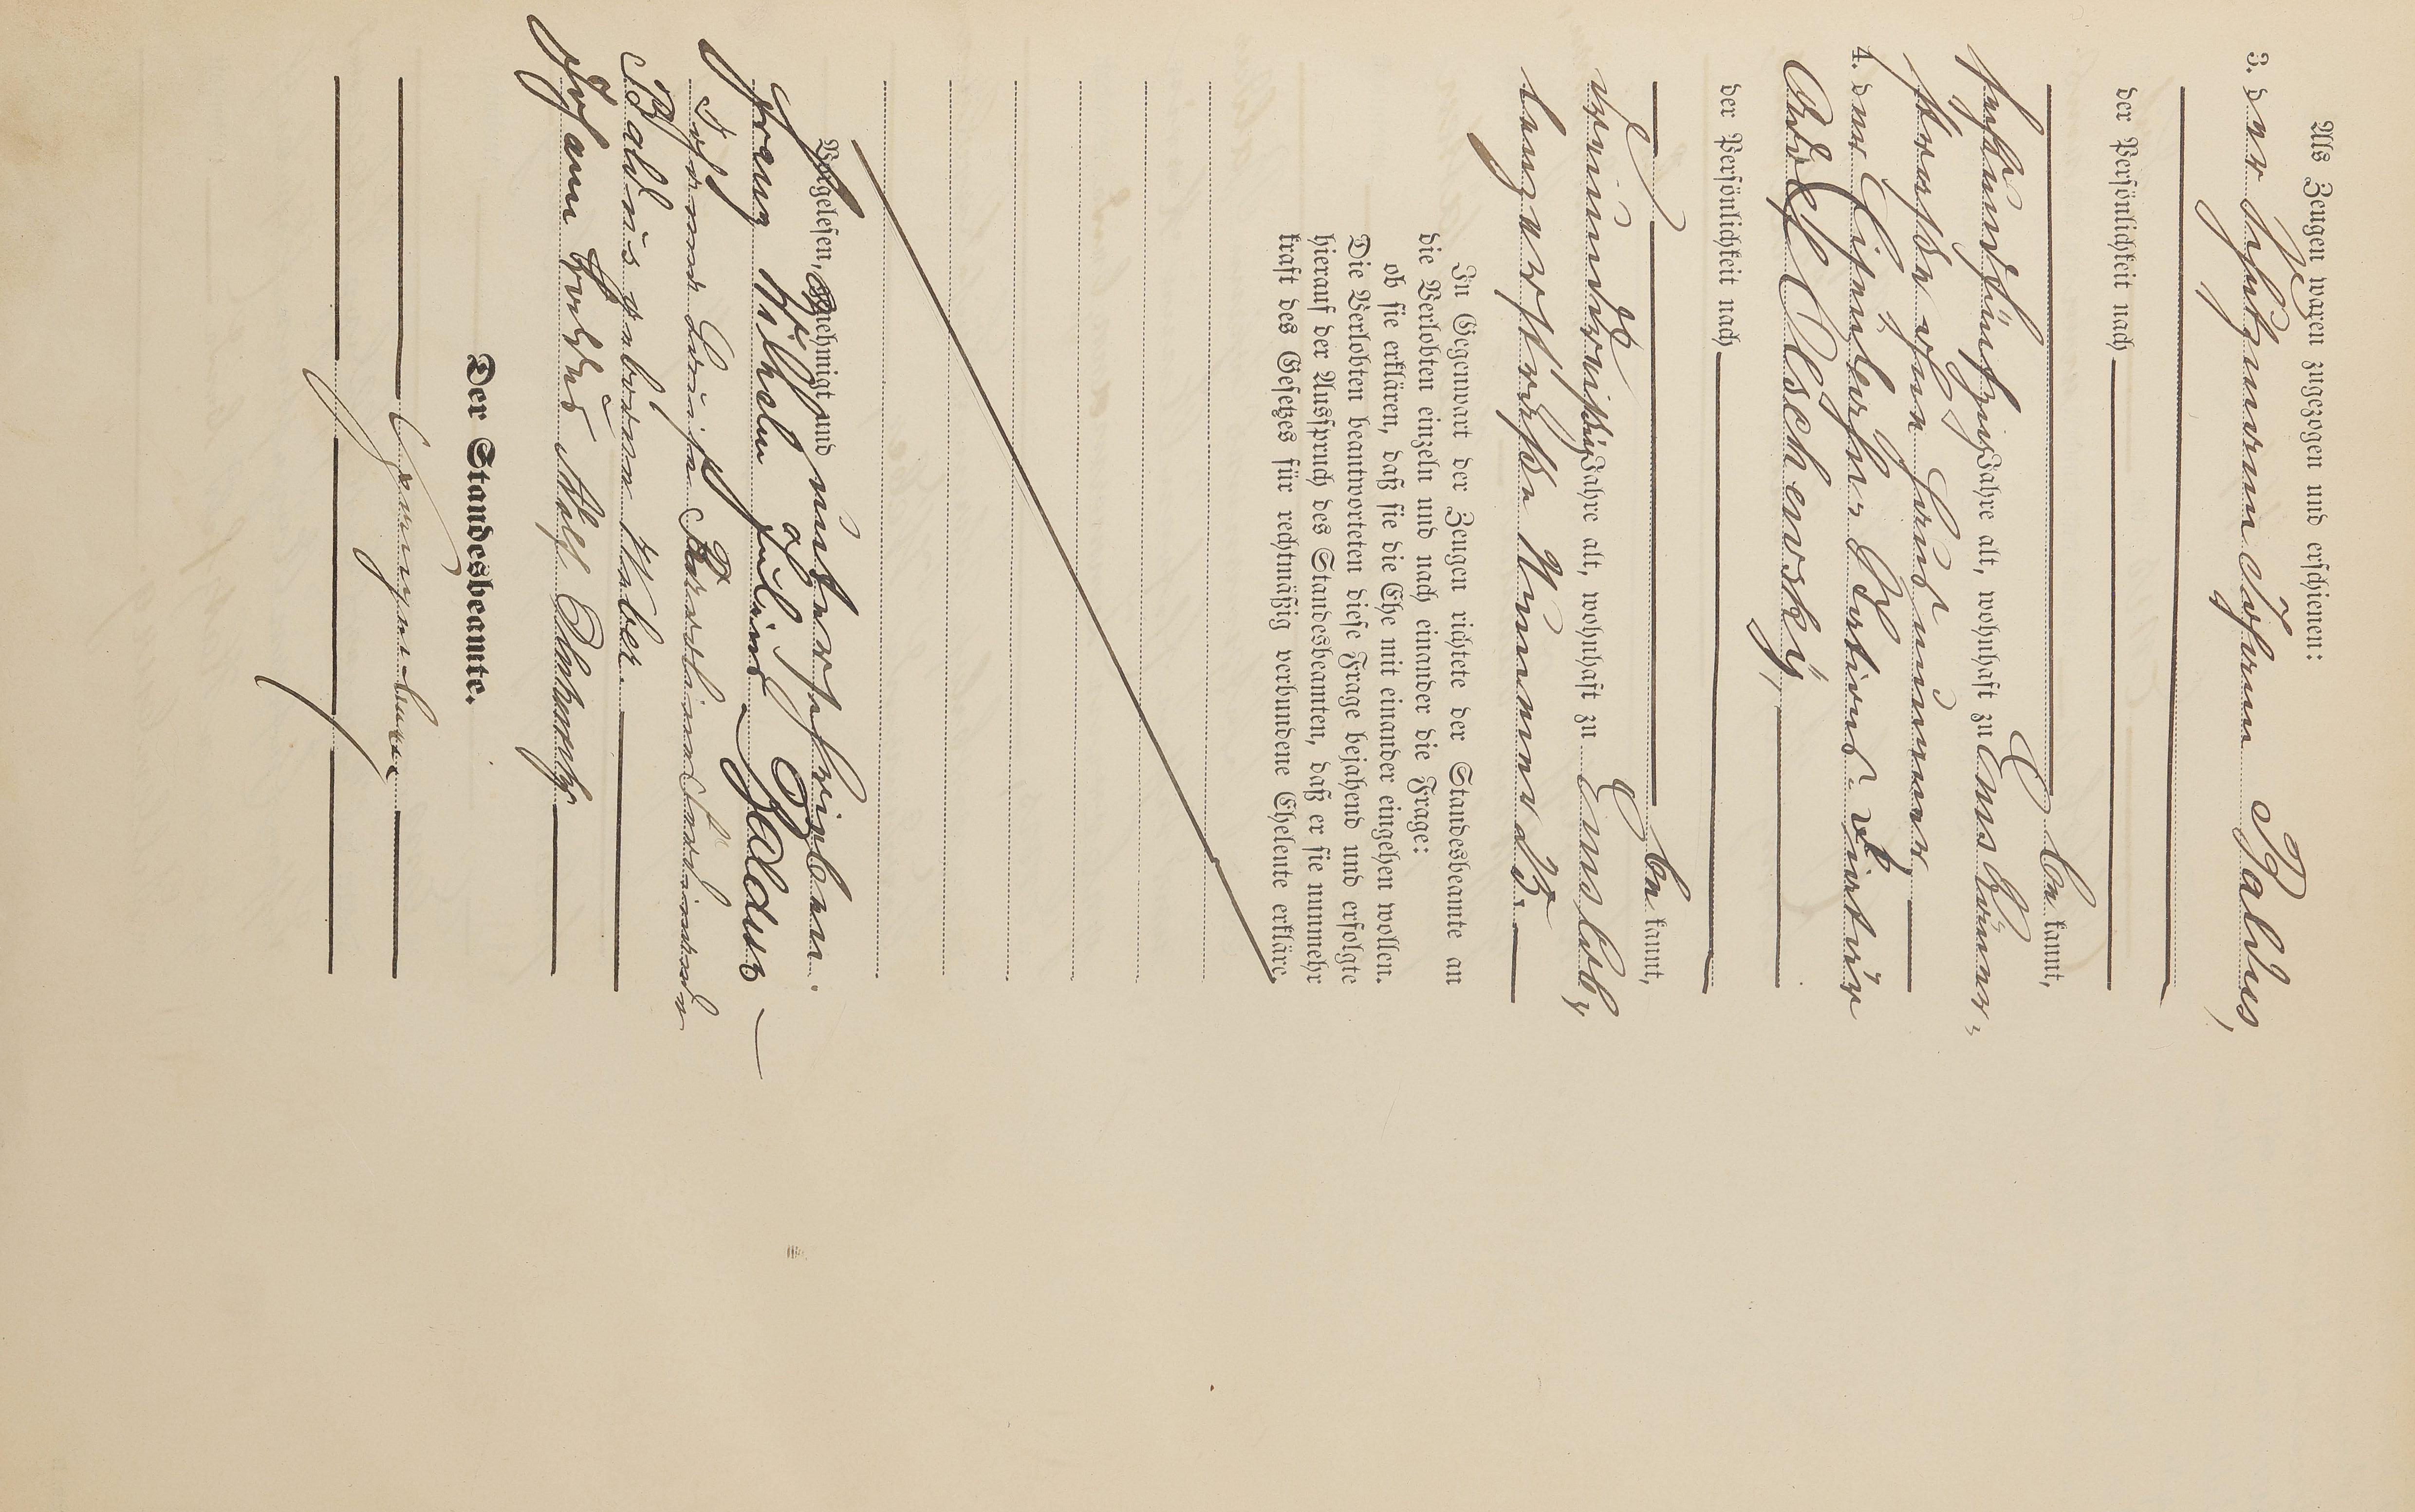 Als Zeugen waren zugezogen und erschienen:
3. der Schutzmann Johann Baldus,
der Persönlichkeit nach
be kannt,
fünfzig Jahre alt, wohnhaft zu
straße ohne Hausnummer,
4. der Eisenbahn-Stations-Diätar
Adolf Olschewsky,
der Persönlichkeit nach
be kannt,
Jahre alt, wohnhaft zu
straße Nummer 23.
In Gegenwart der Zeugen richtete der Standesbeamte an
die Verlobten einzeln und nach einander die Frage:
ob sie erklären, daß sie die Ehe mit einander eingehen wollen.
Die Verlobten beantworteten diese Frage bejahend und erfolgte
hierauf der Ausspruch des Standesbeamten, daß er sie nunmehr
kraft des Gesetzes für rechtmäßig verbundene Eheleute erkläre.
Vorgelesen, genehmigt und unterschrieben.
Franz Wilhelm Julius Baldus
Johanna Louise
Baldus geboren Weber.
Johann Baldus Adolf Olschewsky
Der Standesbeamte.